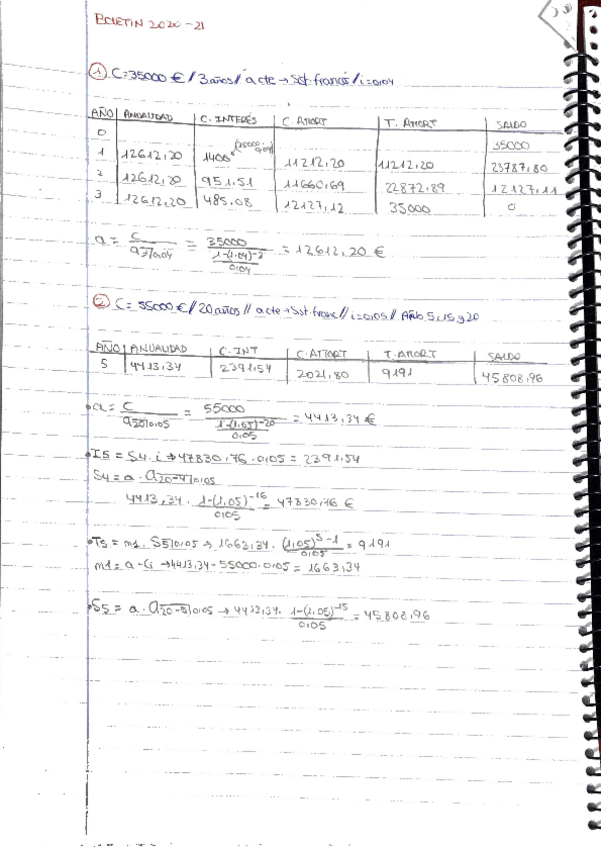 BOLETIN 2020-21
① C=35000 € // 3 años // a cte → Sist. francés / i=0,04
AÑO ANUALIDAD C. INTERÉS C. AMORT T. AMORT SALDO
0 35000
(35000·0,04)
1 12612,20 1400 11212,20 11212,20 23787,80
2 12612,20 951,51 11660,69 22872,89 12127,11
3 12612,20 485,08 12127,12 35000 0
a = C / a3|0,04 = 35000 / (1-(1,04)^-3 / 0,04) = 12612,20 €
② C= 55000 € / 20 años // a cte → Sist. franc // i=0,05 // Año 5, 15 y 20
AÑO ANUALIDAD C. INT C. AMORT T. AMORT SALDO
5 4413,34 2391,54 2021,80 9191 45808,96
• a = C / a20|0,05 = 55000 / (1-(1,05)^-20 / 0,05) = 4413,34 €
• I5 = S4 · i → 47830,76 · 0,05 = 2391,54
S4 = a · a20-4|0,05
4413,34 · 1-(1,05)^-16 / 0,05 = 47830,76 €
• T5 = m1 · S5|0,05 → 1663,34 · (1,05)^5 - 1 / 0,05 = 9191
m1 = a - Ci → 4413,34 - 55000 · 0,05 = 1663,34
• S5 = a · a20-5|0,05 → 4413,34 · 1-(1,05)^-15 / 0,05 = 45808,96